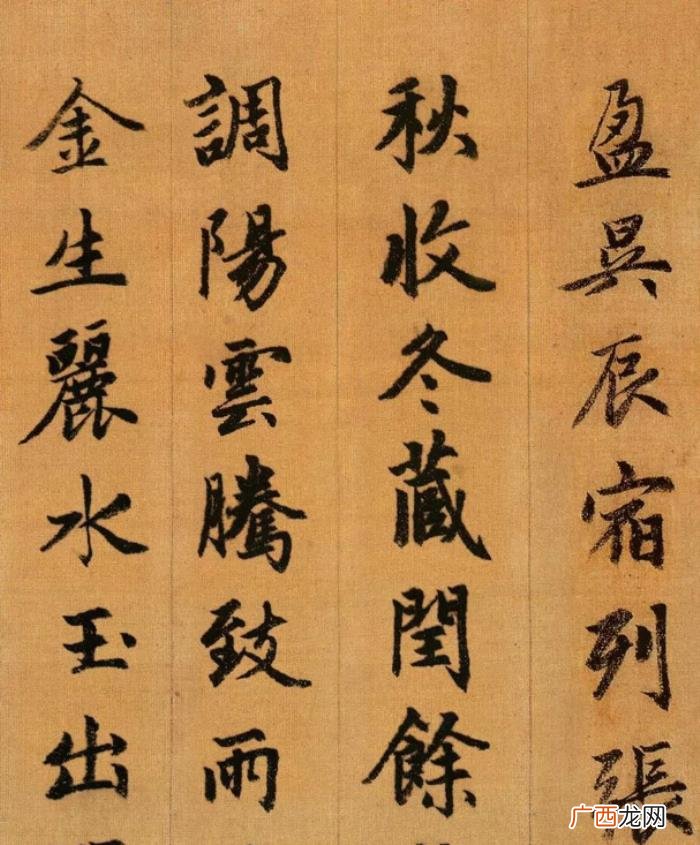 盈昃辰宿列張
秋收冬藏閏餘
調陽雲騰致雨
金生麗水玉出
广西龙网